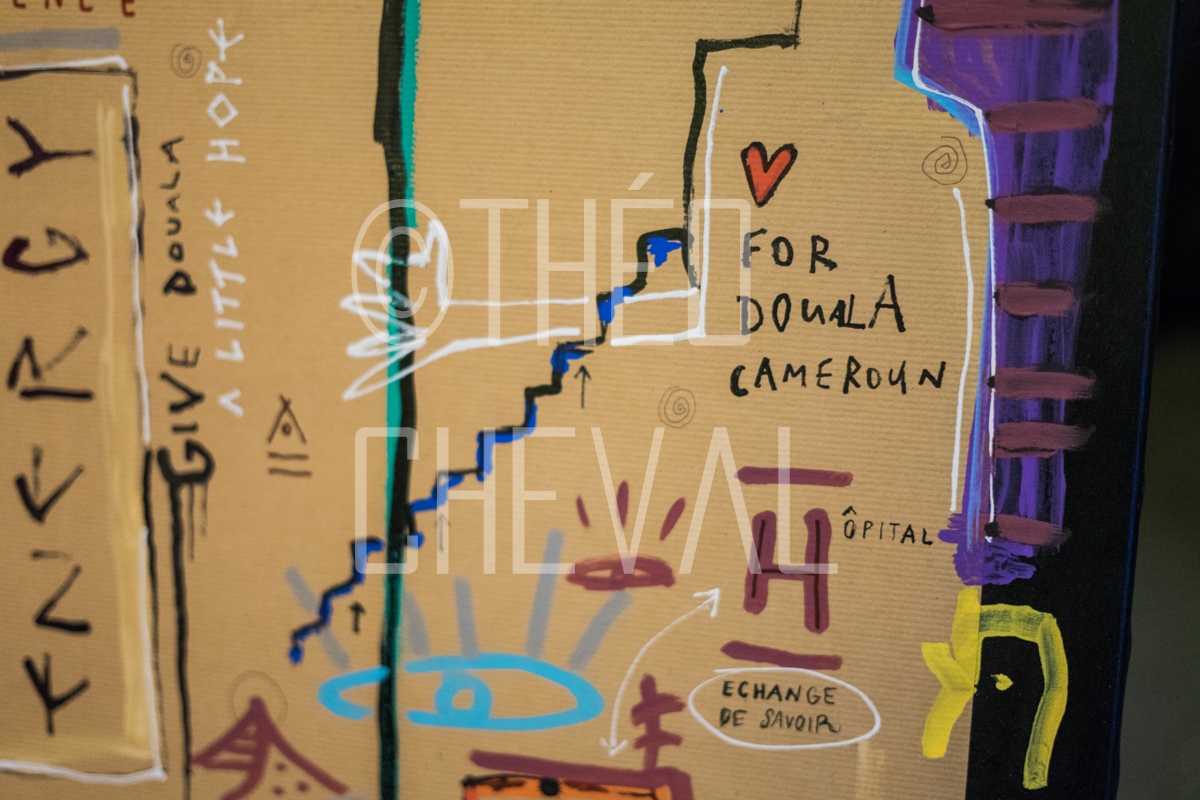 ENERGY
GIVE DOUALA
A LITTLE HOPE
FOR
DOUALA
CAMEROUN
HÔPITAL
ECHANGE
DE SAVOIR
©THÉO
CHEVAL